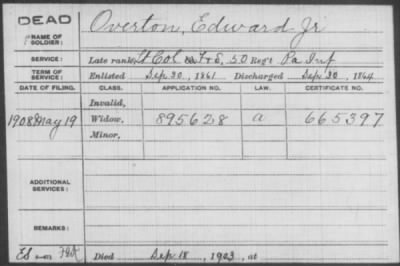 DEAD
NAME OF SOLDIER: Overton, Edward Jr
SERVICE: Late rank Lt Col F+S, 50 Reg't Pa Inf
TERM OF SERVICE: Enlisted Sep. 30, 1861 Discharged Sep. 30, 1864
DATE OF FILING. CLASS. APPLICATION NO. LAW. CERTIFICATE NO.
Invalid,
1908 May 19 Widow, 895628 a 665397
Minor,
ADDITIONAL SERVICES:
REMARKS:
Died Sep. 18, 1903, at